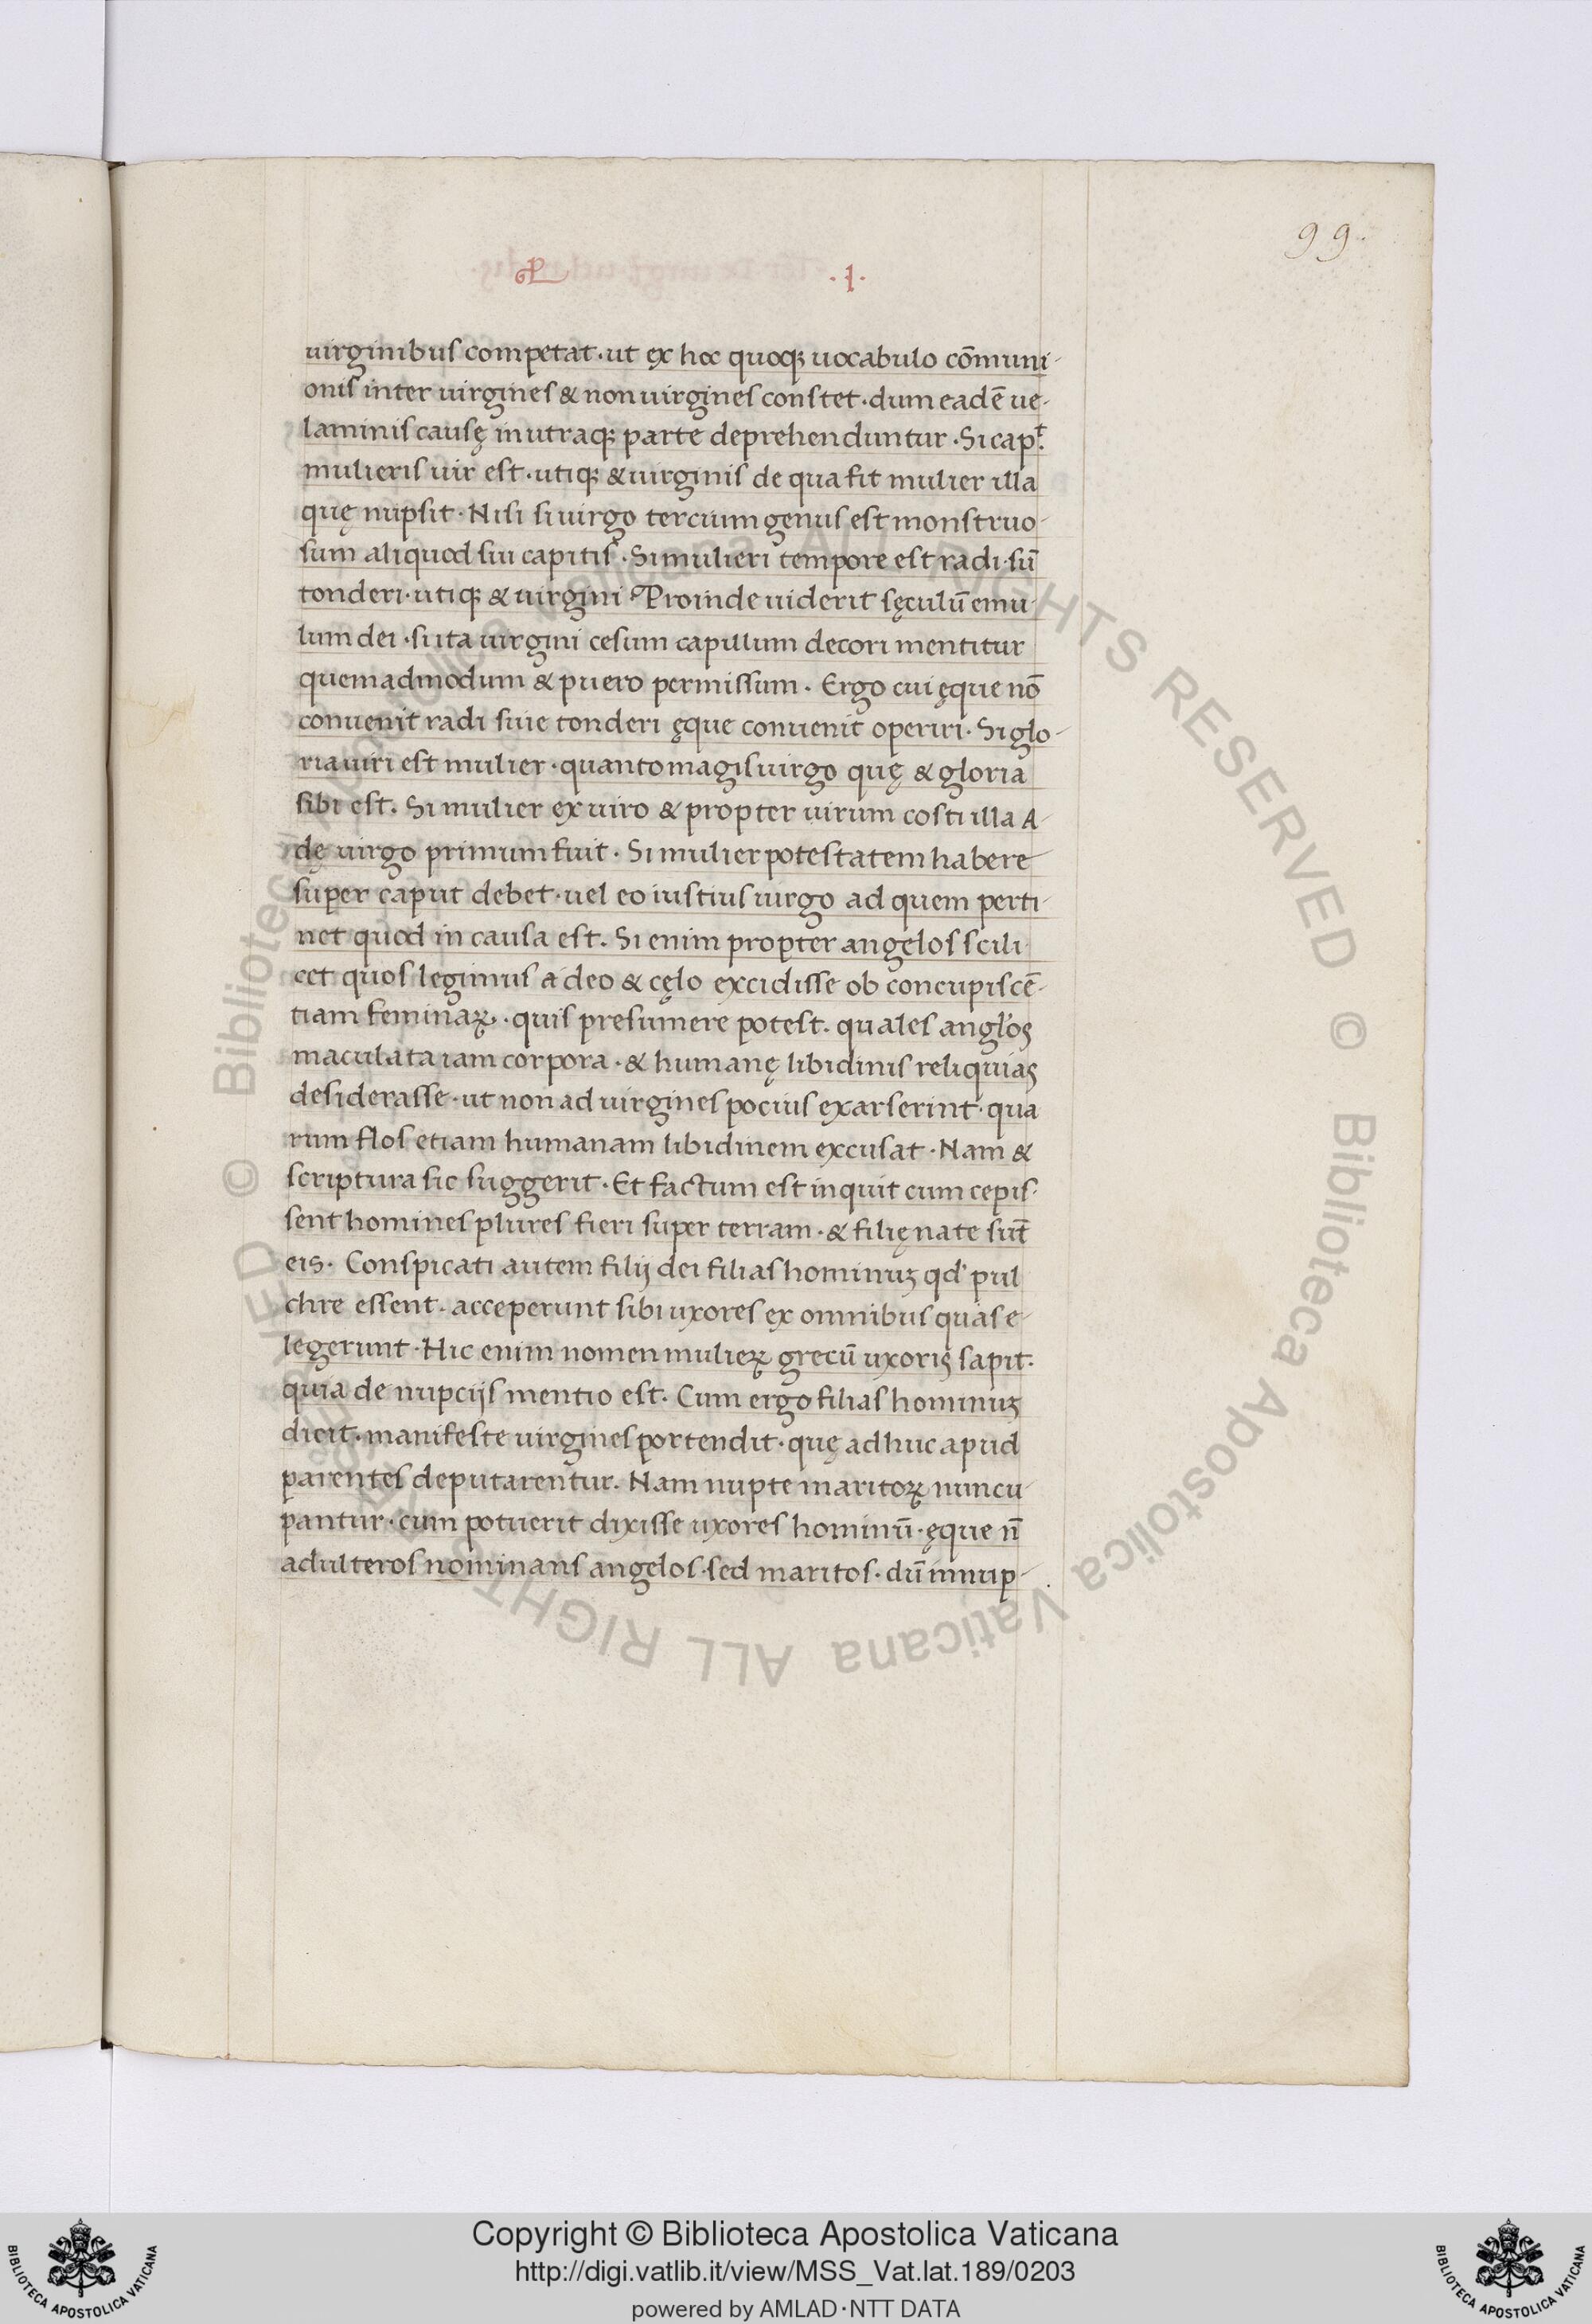 99.
.1.
uirginibus competat · ut ex hoc quoqꝫ uocabulo cōmuni-
onis inter uirgines & non uirgines constet · dum eadē ue-
laminis causę in utraqꝫ parte deprehenduntur · Si capᵗ.
mulieris uir est · utiqꝫ & uirginis de qua fit mulier illa
quę nupsit · Nisi si uirgo tercium genus est monstruo-
sum aliquod sui capitis · Si mulieri tempore est radi · siū
tonderi · utiqꝫ & uirgini · Proinde uiderit sęculū emu-
lum dei · si ita uirgini cesum capillum decori mentitur
quemadmodum & puero permissum · Ergo cui ęque nō
conuenit radi siue tonderi ęque conuenit operiri · Si glo-
ria uiri est mulier · quanto magis uirgo quę & gloria
sibi est. Si mulier ex uiro & propter uirum costi illa A-
dę uirgo primum fuit · Si mulier potestatem habere
super caput debet · uel eo iustius uirgo ad quem perti-
net quod in causa est. Si enim propter angelos scili-
cet quos legimus a deo & cęlo excidisse ob concupiscē-
tiam feminaꝝ · quis presumere potest. quales angl'os
maculata iam corpora · & humanę libidinis reliquias
desiderasse · ut non ad uirgines pocius exarserint · qua
rum flos etiam humanam libidinem excusat · Nam &
scriptura sic suggerit · Et factum est inquit cum cepis-
sent homines plures fieri super terram · & filię nate sūt
eis · Conspicati autem filij dei filias hominuꝫ qd' pul
chre essent · acceperunt sibi uxores ex omnibus quas e-
legerunt · Hic enim nomen mulieꝝ grecū uxoris sapit ·
quia de nupcijs mentio est. Cum ergo filias hominuꝫ
dicit · manifeste uirgines portendit · quę adhuc apud
parentes deputarentur. Nam nupte maritoꝝ nuncu-
pantur · cum potuerit dixisse uxores hominū · ęque n̄
adulteros nominans angelos · sed maritos · dū innup-
© Biblioteca Apostolica Vaticana ALL RIGHTS RESERVED
© Biblioteca Apostolica Vaticana ALL RIGHTS RESERVED
Copyright © Biblioteca Apostolica Vaticana
http://digi.vatlib.it/view/MSS_Vat.lat.189/0203
powered by AMLAD·NTT DATA
BIBLIOTECA APOSTOLICA VATICANA
BIBLIOTECA APOSTOLICA VATICANA